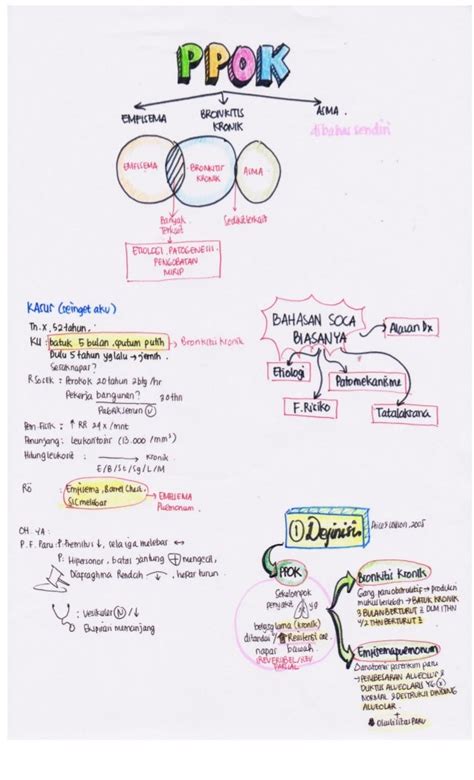 PPOK
EMPISEMA
BRONKITIS
KRONIK
ASMA
dibahas sendiri
EMPISEMA
BRONKITIS
KRONIK
ASMA
Banyak
Terkait
Sedikit terkait
ETIOLOGI, PATOGENESIS,
PENGOBATAN
MIRIP
KASUS (seinget aku)
Tn. X, 52 tahun,
KU : batuk 5 bulan, sputum putih → Bronkitis Kronik
Dulu 5 tahun yg lalu → jernih.
Sesak napas?
R Sosek : Perokok 20 tahun 2bg/hr
Pekerja bangunan? 30 thn
Pabrik semen
Pem. Fisik : ↑ RR 29 x/mnt
Penunjang : leukositosis (13.000 /mm³)
Hitung leukosit : → Kronik
E/B/St/Sg/L/M
Rö : Emfisema, Barrel Chest
SIC melebar
→ EMFISEMA
Pulmonum
BAHASAN SOCA
BIASANYA
Alasan Dx
Etiologi
Patomekanisme
F. Risiko
Tatalaksana
OH. YA :
P. F. Paru : P. Fremitus ↓, sela iga melebar ↔
P: Hipersonor, batas jantung mengecil,
Diaphragma Rendah ↓, hepar turun.
: Vesikuler (N) / ↓
Ekspirasi memanjang
① Definisi.
2005
PPOK
Sekelompok
penyakit yg
berlgsg lama (kronik)
ditandai ↑ Resistensi sal.
napas bawah
(REVERSIBEL/REV
PARSIAL)
Bronkitis Kronik
Gang. paru obstruktif → produksi
mukus berlebih → BATUK KRONIK
3 BULAN BERTURUT² DLM 1 THN
2 THN BERTURUT²
Emfisema pulmonum
parenkim paru
→ PEMBESARAN ALVEOLUS &
DUKTUS ALVEOLARIS YG
NORMAL & DESTRUKSI DINDING
ALVEOLAR.
+
↓ Elastisitas Paru